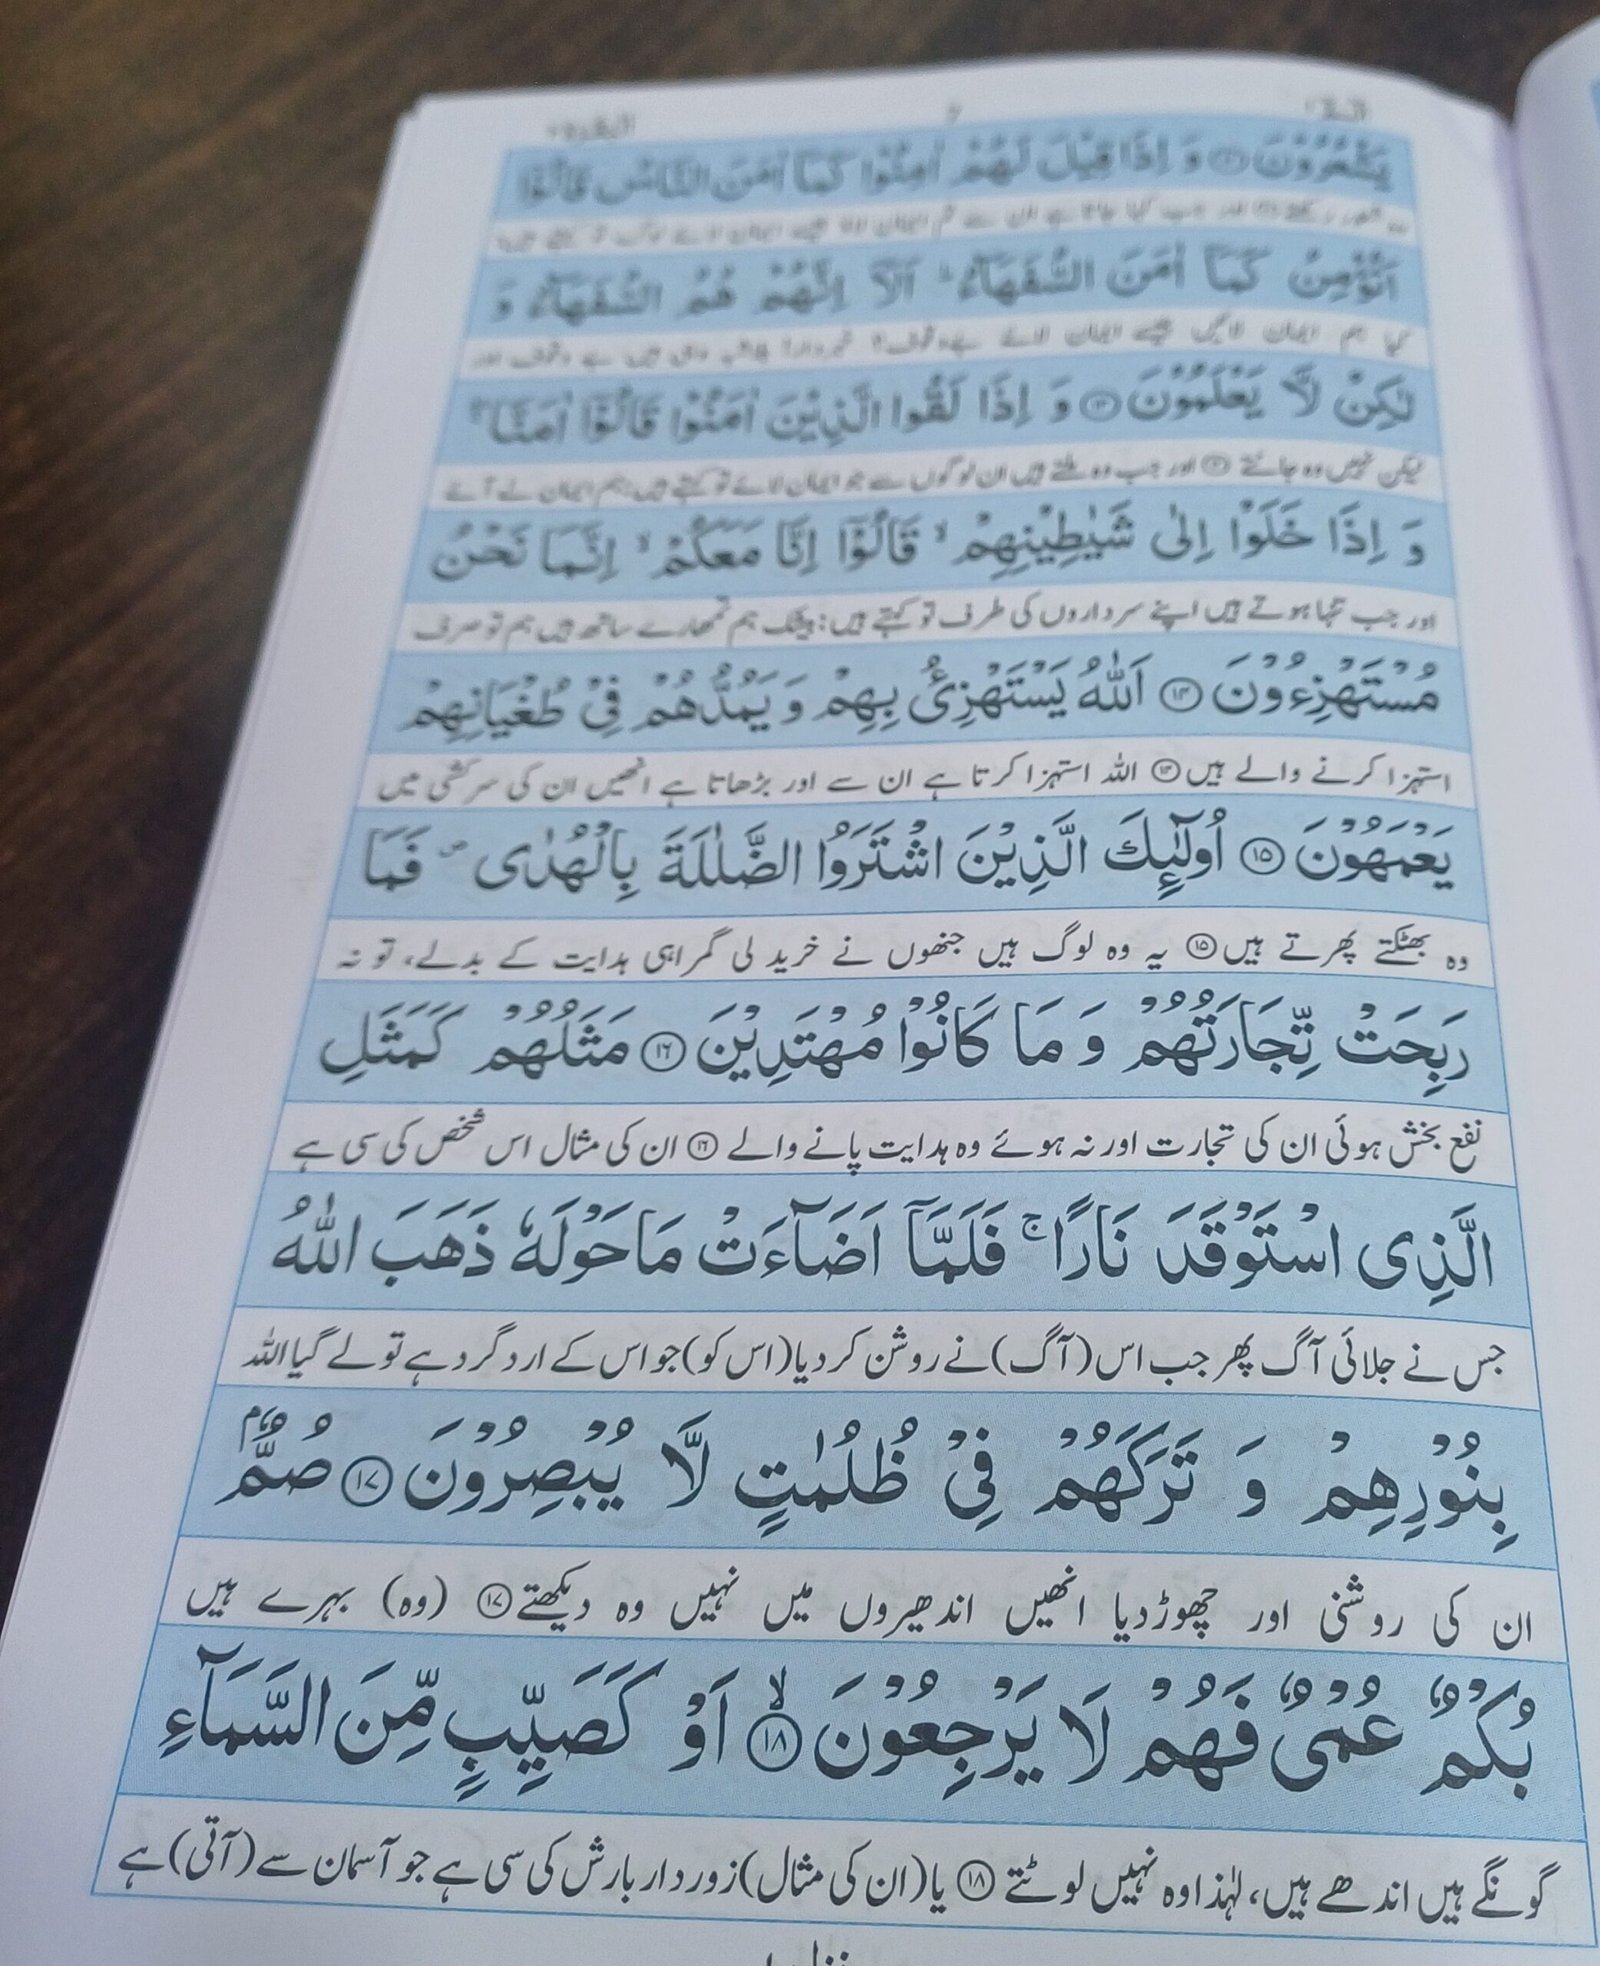 البقرة ٢
يَشْعُرُوْنَ ۝ وَ اِذَا قِيْلَ لَهُمْ اٰمِنُوْا كَمَاۤ اٰمَنَ النَّاسُ قَالُوْۤا
اور جب کہا جاتا ہے ان سے تم ایمان لاؤ جیسے ایمان لائے لوگ تو کہتے ہیں:
اَنُؤْمِنُ كَمَاۤ اٰمَنَ السُّفَهَآءُ ؕ اَلَاۤ اِنَّهُمْ هُمُ السُّفَهَآءُ وَ
کیا ہم ایمان لائیں جیسے ایمان لائے بے وقوف؟ خبردار! بلاشبہ وہی ہیں بے وقوف اور
لٰكِنْ لَّا يَعْلَمُوْنَ ۝۱۳ وَ اِذَا لَقُوا الَّذِيْنَ اٰمَنُوْا قَالُوْۤا اٰمَنَّا ۖۚ
لیکن نہیں وہ جانتے ۝۱۳ اور جب وہ ملتے ہیں ان لوگوں سے جو ایمان لائے تو کہتے ہیں: ہم ایمان لے آئے
وَ اِذَا خَلَوْا اِلٰى شَيٰطِيْنِهِمْ ۙ قَالُوْۤا اِنَّا مَعَكُمْ ۙ اِنَّمَا نَحْنُ
اور جب تنہا ہوتے ہیں اپنے سرداروں کی طرف تو کہتے ہیں: بیشک ہم تمھارے ساتھ ہیں ہم تو صرف
مُسْتَهْزِءُوْنَ ۝۱۴ اَللّٰهُ يَسْتَهْزِئُ بِهِمْ وَ يَمُدُّهُمْ فِيْ طُغْيَانِهِمْ
استہزا کرنے والے ہیں ۝۱۴ اللہ استہزا کرتا ہے ان سے اور بڑھاتا ہے انھیں ان کی سرکشی میں
يَعْمَهُوْنَ ۝۱۵ اُولٰٓئِكَ الَّذِيْنَ اشْتَرَوُا الضَّلٰلَةَ بِالْهُدٰى ۪ فَمَا
وہ بھٹکتے پھرتے ہیں ۝۱۵ یہ وہ لوگ ہیں جنھوں نے خرید لی گمراہی ہدایت کے بدلے، تو نہ
رَبِحَتْ تِّجَارَتُهُمْ وَ مَا كَانُوْا مُهْتَدِيْنَ ۝۱۶ مَثَلُهُمْ كَمَثَلِ
نفع بخش ہوئی ان کی تجارت اور نہ ہوئے وہ ہدایت پانے والے ۝۱۶ ان کی مثال اس شخص کی سی ہے
الَّذِى اسْتَوْقَدَ نَارًا ۚ فَلَمَّاۤ اَضَآءَتْ مَا حَوْلَهٗ ذَهَبَ اللّٰهُ
جس نے جلائی آگ پھر جب اس (آگ) نے روشن کر دیا (اس کو) جو اس کے ارد گرد ہے تو لے گیا اللہ
بِنُوْرِهِمْ وَ تَرَكَهُمْ فِيْ ظُلُمٰتٍ لَّا يُبْصِرُوْنَ ۝۱۷ صُمٌّۢ
ان کی روشنی اور چھوڑ دیا انھیں اندھیروں میں نہیں وہ دیکھتے ۝۱۷ (وہ) بہرے ہیں
بُكْمٌ عُمْيٌ فَهُمْ لَا يَرْجِعُوْنَ ۝۱۸ۙ اَوْ كَصَيِّبٍ مِّنَ السَّمَآءِ
گونگے ہیں اندھے ہیں، لہٰذا وہ نہیں لوٹتے ۝۱۸ یا (ان کی مثال) زور دار بارش کی سی ہے جو آسمان سے (آتی) ہے